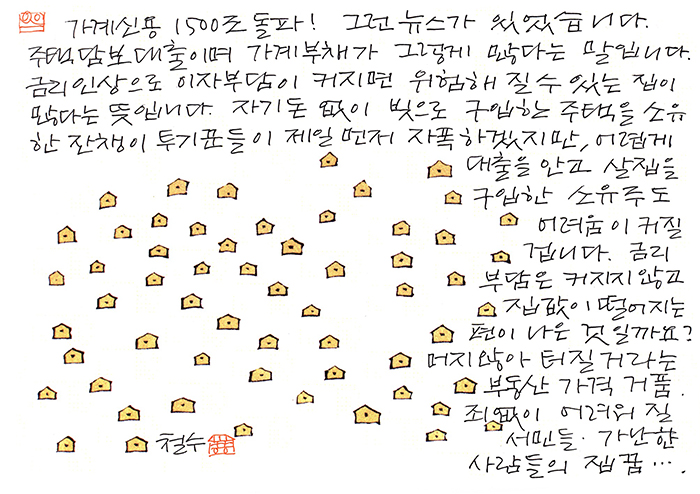 가계신용 1500조 돌파! 그런 뉴스가 있었습니다.
주택담보대출이며 가계부채가 그렇게 많다는 말입니다.
금리인상으로 이자부담이 커지면 위험해 질 수 있는 집이
많다는 뜻입니다. 자기돈 없이 빚으로 구입한 주택을 소유
한 잔챙이 투기꾼들이 제일 먼저 자폭하겠지만, 어렵게
대출을 안고 살집을
구입한 소유주도
어려움이 커질
겁니다. 금리
부담은 커지지 않고
집값이 떨어지는
편이 나은 것일까요?
머지않아 터질거라는
부동산 가격 거품.
죄없이 어려워 질
서민들. 가난한
사람들의 집 꿈….
철수